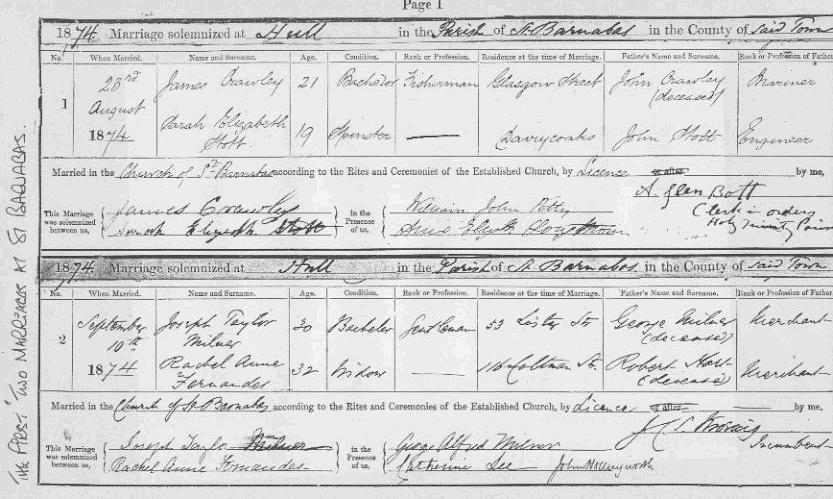 Page 1
1874. Marriage solemnized at Hull in the Parish of St. Barnabas in the County of said Town
No. When Married. Name and Surname. Age. Condition. Rank or Profession. Residence at the time of Marriage. Father's Name and Surname. Rank or Profession of Father
1 23rd August 1874 James Crawley 21 Bachelor Fisherman Glasgow Street John Crawley (deceased) Mariner
Sarah Elizabeth Stott 19 Spinster Dairycoates John Stott Engineer
Married in the Church of St Barnabas according to the Rites and Ceremonies of the Established Church, by Licence or after by me,
This Marriage was solemnized between us, James Crawley
Sarah Elizabeth Stott
In the Presence of us, William John
A. Glen Bott
Clerk in orders
Holy Trinity
1874. Marriage solemnized at Hull in the Parish of St. Barnabas in the County of said Town
No. When Married. Name and Surname. Age. Condition. Rank or Profession. Residence at the time of Marriage. Father's Name and Surname. Rank or Profession of Father
2 September 10th 1874 Joseph Taylor Milner 30 Bachelor Gentleman 53 Lister St. George Milner (deceased) Merchant
Rachel Anne Fernandes 32 Widow 116 Coltman St. Robert (deceased) Merchant
Married in the Church of St Barnabas according to the Rites and Ceremonies of the Established Church, by Licence or after by me,
This Marriage was solemnized between us, Joseph Taylor Milner
Rachel Anne Fernandes
in the Presence of us, George Alfred Milner
Catherine Lee John Hollingworth
Incumbent
THE FIRST TWO MARRIAGES AT ST BARNABAS.